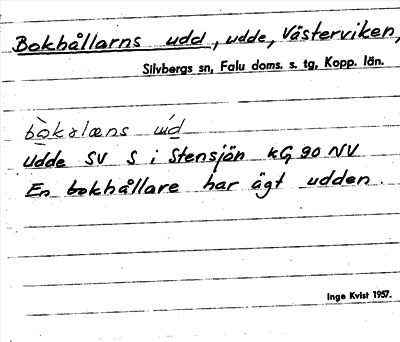 Bokhållarns udd, udde, Västerviken,
Silvbergs sn, Falu doms. s. tg, Kopp. län.
bòkəlæns úd
udde SV S i Stensjön kG 90 NV
En bokhållare har ägt udden.
Inge Kvist 1957.